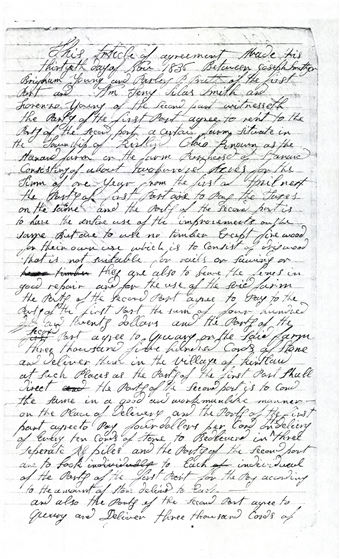 This Article of agreement Made this
thirtyeth day of Nov 1835 Between Joseph Smith
Brigham Young and Parley P Pratt of the first
Part and Wm Feny Silas Smith an
Lorenzo Young of the Second part witnesseth
the Party of the first Part agree to rent to the
Party of the Second part a certain farm situate in
the Township of Kirtland Ohio known as the
farm or the farm of
Consisting of about two hundred Acres for the
Term of one Year from the first of April next
the Party of first Part are to Pay the Taxes
on the same and the Party of the Second part is
to have the entire use of the improvements on the
same But are to use no timber Except fire wood
for their own use which is to Consist of
that is not suitable for rails or sawing or
timber they are also to leave the fences in
good repair and for the use of the said farm
the Party of the Second Part agree to Pay to the
Party of the first Part the sum of four hundred
and twenty dollars and the Party of the
Second Part agree to Quarry on the said farm
three thousand five hundred Cords of Stone
and Deliver them in the Village of Kirtland
at such Places as the Party of the first Part Shall
Direct and the Party of the Second part is to Cord
the same in a good and workmanlike manner
on the Place of Delivery and the Party of the first
part agree to Pay four dollars per Cord on Delivery
of Every ten Cords of Stone to Be in three
seperate piles and the Party of the Second part
are to look individually to Each individual
of the Party of the first Part for the Pay according
to the amount of Stone Delivd to Each
and also the Party of the Second Part agree to
Quarry and Deliver three thousand Cords of